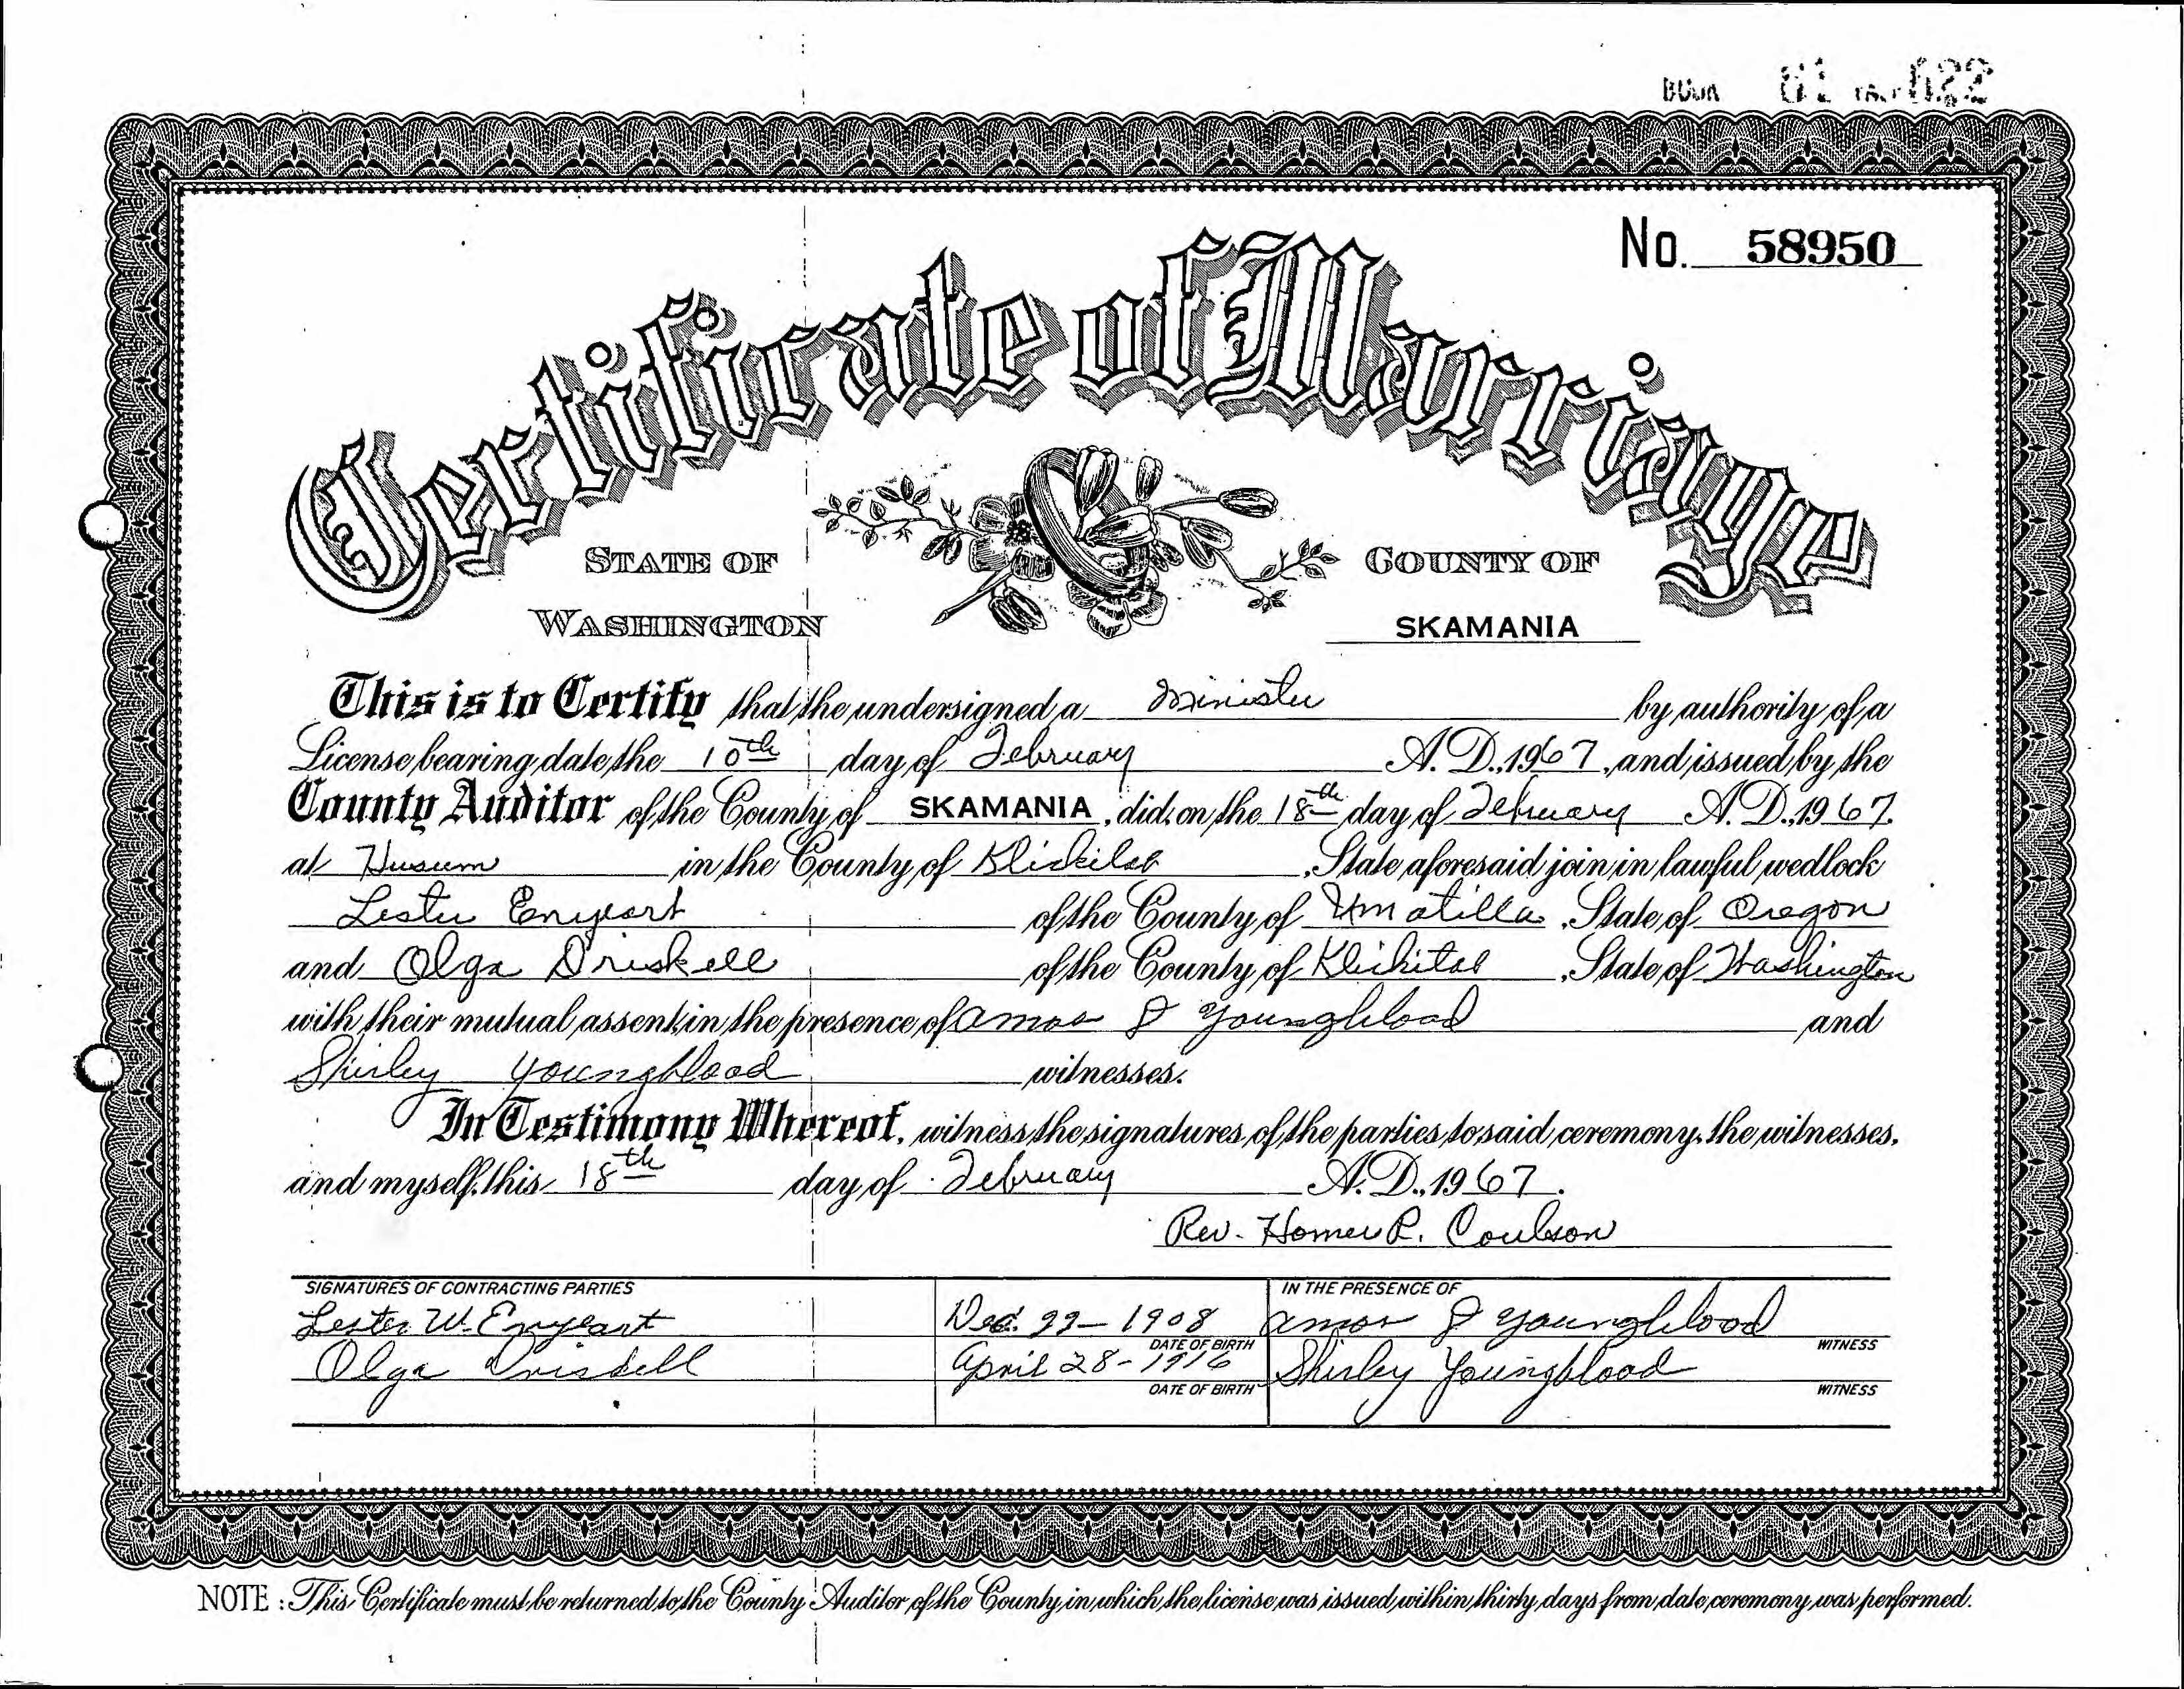 BOOK 61 PAGE 622
No. 58950
Certificate of Marriage
STATE OF WASHINGTON
COUNTY OF SKAMANIA
This is to Certify that the undersigned a Minister by authority of a
License bearing date the 10th day of February A.D., 1967, and issued by the
County Auditor of the County of SKAMANIA, did, on the 18th day of February A.D., 1967.
at Husum in the County of Klickitat, State aforesaid join in lawful wedlock
Lester Enyeart of the County of Umatilla, State of Oregon
and Olga Driskell of the County of Klickitat, State of Washington
with their mutual assent, in the presence of Amos Youngblood and
Shirley Youngblood witnesses.
In Testimony Whereof, witness the signatures of the parties to said ceremony, the witnesses,
and myself, this 18th day of February A.D., 1967.
Rev. Homer R. Coulson
SIGNATURES OF CONTRACTING PARTIES
IN THE PRESENCE OF
Lester W. Enyeart Dec. 1908 DATE OF BIRTH Amos Youngblood WITNESS
Olga Driskell April 28-1916 DATE OF BIRTH Shirley Youngblood WITNESS
NOTE: This Certificate must be returned to the County Auditor of the County in which the license was issued within thirty days from date ceremony was performed.